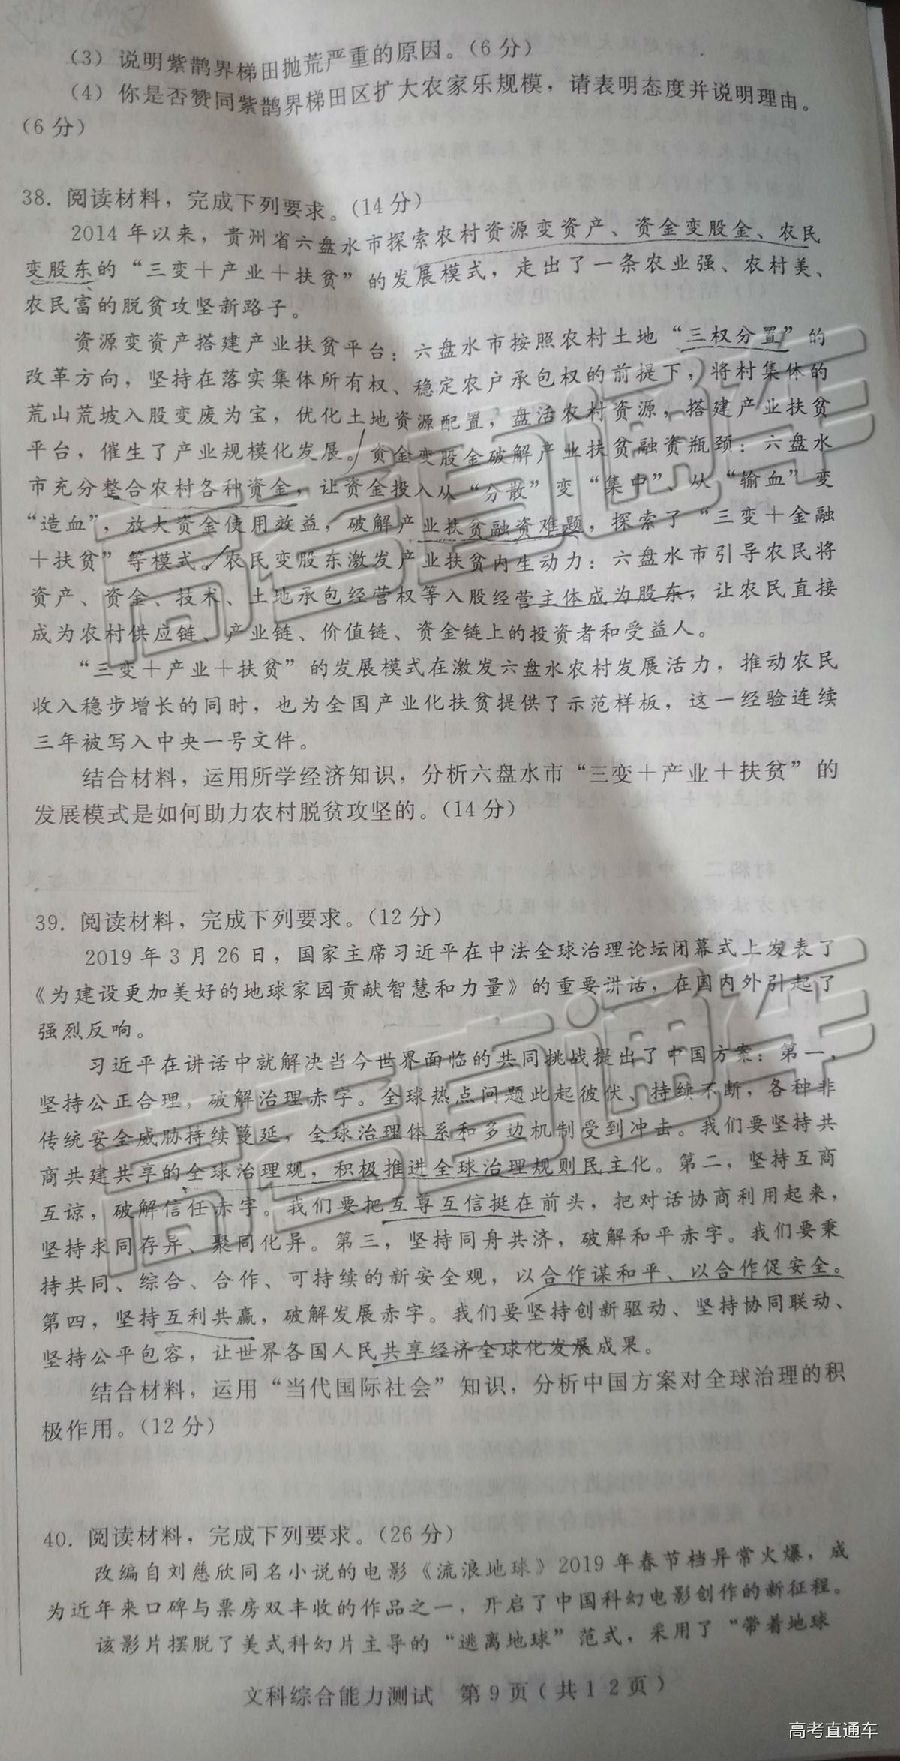 (3) 说明紫鹊界梯田抛荒严重的原因。(6分)
(4) 你是否赞同紫鹊界梯田区扩大农家乐规模，请表明态度并说明理由。
(6分)
38. 阅读材料，完成下列要求。(14分)
2014年以来，贵州省六盘水市探索农村资源变资产、资金变股金、农民
变股东的“三变＋产业＋扶贫”的发展模式，走出了一条农业强、农村美、
农民富的脱贫攻坚新路子。
资源变资产搭建产业扶贫平台：六盘水市按照农村土地“三权分置”的
改革方向，坚持在落实集体所有权、稳定农户承包权的前提下，将村集体的
荒山荒坡入股变废为宝，优化土地资源配置，盘活农村资源，搭建产业扶贫
平台，催生了产业规模化发展。资金变股金破解产业扶贫融资瓶颈：六盘水
市充分整合农村各种资金，让资金投入从“分散”变“集中”、从“输血”变
“造血”，放大资金使用效益，破解产业扶贫融资难题，探索了“三变＋金融
＋扶贫”等模式。农民变股东激发产业扶贫内生动力：六盘水市引导农民将
资产、资金、技术、土地承包经营权等入股经营主体成为股东，让农民直接
成为农村供应链、产业链、价值链、资金链上的投资者和受益人。
“三变＋产业＋扶贫”的发展模式在激发六盘水农村发展活力，推动农民
收入稳步增长的同时，也为全国产业化扶贫提供了示范样板，这一经验连续
三年被写入中央一号文件。
结合材料，运用所学经济知识，分析六盘水市“三变＋产业＋扶贫”的
发展模式是如何助力农村脱贫攻坚的。(14分)
39. 阅读材料，完成下列要求。(12分)
2019年3月26日，国家主席习近平在中法全球治理论坛闭幕式上发表了
《为建设更加美好的地球家园贡献智慧和力量》的重要讲话，在国内外引起了
强烈反响。
习近平在讲话中就解决当今世界面临的共同挑战提出了中国方案：第一，
坚持公正合理，破解治理赤字。全球热点问题此起彼伏、持续不断，各种非
传统安全威胁持续蔓延，全球治理体系和多边机制受到冲击。我们要坚持共
商共建共享的全球治理观，积极推进全球治理规则民主化。第二，坚持互商
互谅，破解信任赤字。我们要把互尊互信挺在前头，把对话协商利用起来，
坚持求同存异、聚同化异。第三，坚持同舟共济，破解和平赤字。我们要秉
持共同、综合、合作、可持续的新安全观，以合作谋和平、以合作促安全。
第四，坚持互利共赢，破解发展赤字。我们要坚持创新驱动、坚持协同联动、
坚持公平包容，让世界各国人民共享经济全球化发展成果。
结合材料，运用“当代国际社会”知识，分析中国方案对全球治理的积
极作用。(12分)
40. 阅读材料，完成下列要求。(26分)
改编自刘慈欣同名小说的电影《流浪地球》2019年春节档异常火爆，成
为近年来口碑与票房双丰收的作品之一，开启了中国科幻电影创作的新征程。
该影片摆脱了美式科幻片主导的“逃离地球”范式，采用了“带着地球
文科综合能力测试 第9页(共12页)
高考直通车
高考直通车
高考直通车